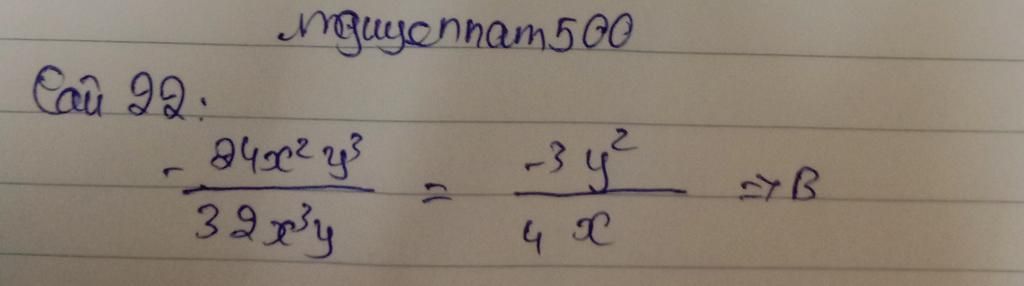 nguyennam500
Câu 22:
- 24x² y³ / 32x³y = -3 y² / 4 x => B